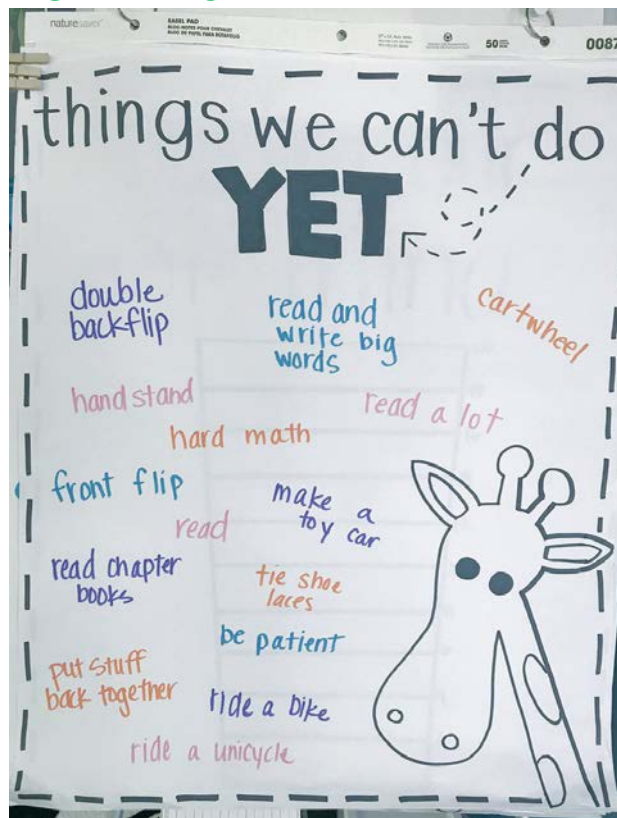 naturesaver
EASEL PAD
BLOC-NOTES POUR CHEVALET
BLOC DE PAPEL PARA ROTAFOLIO
50
0087
things we can't do
YET
double
backflip
read and
write big
words
cartwheel
handstand
read a lot
hard math
front flip
make a
toy car
read
read chapter
books
tie shoe
laces
be patient
put stuff
back together
ride a bike
ride a unicycle